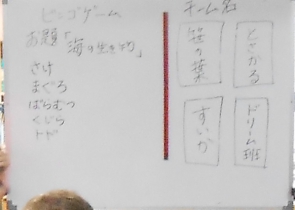 ビンゴゲーム
お題「海の生き物」
さけ
まぐろ
くじら
トド
チーム名
笹の葉
すいか
ドリーム班